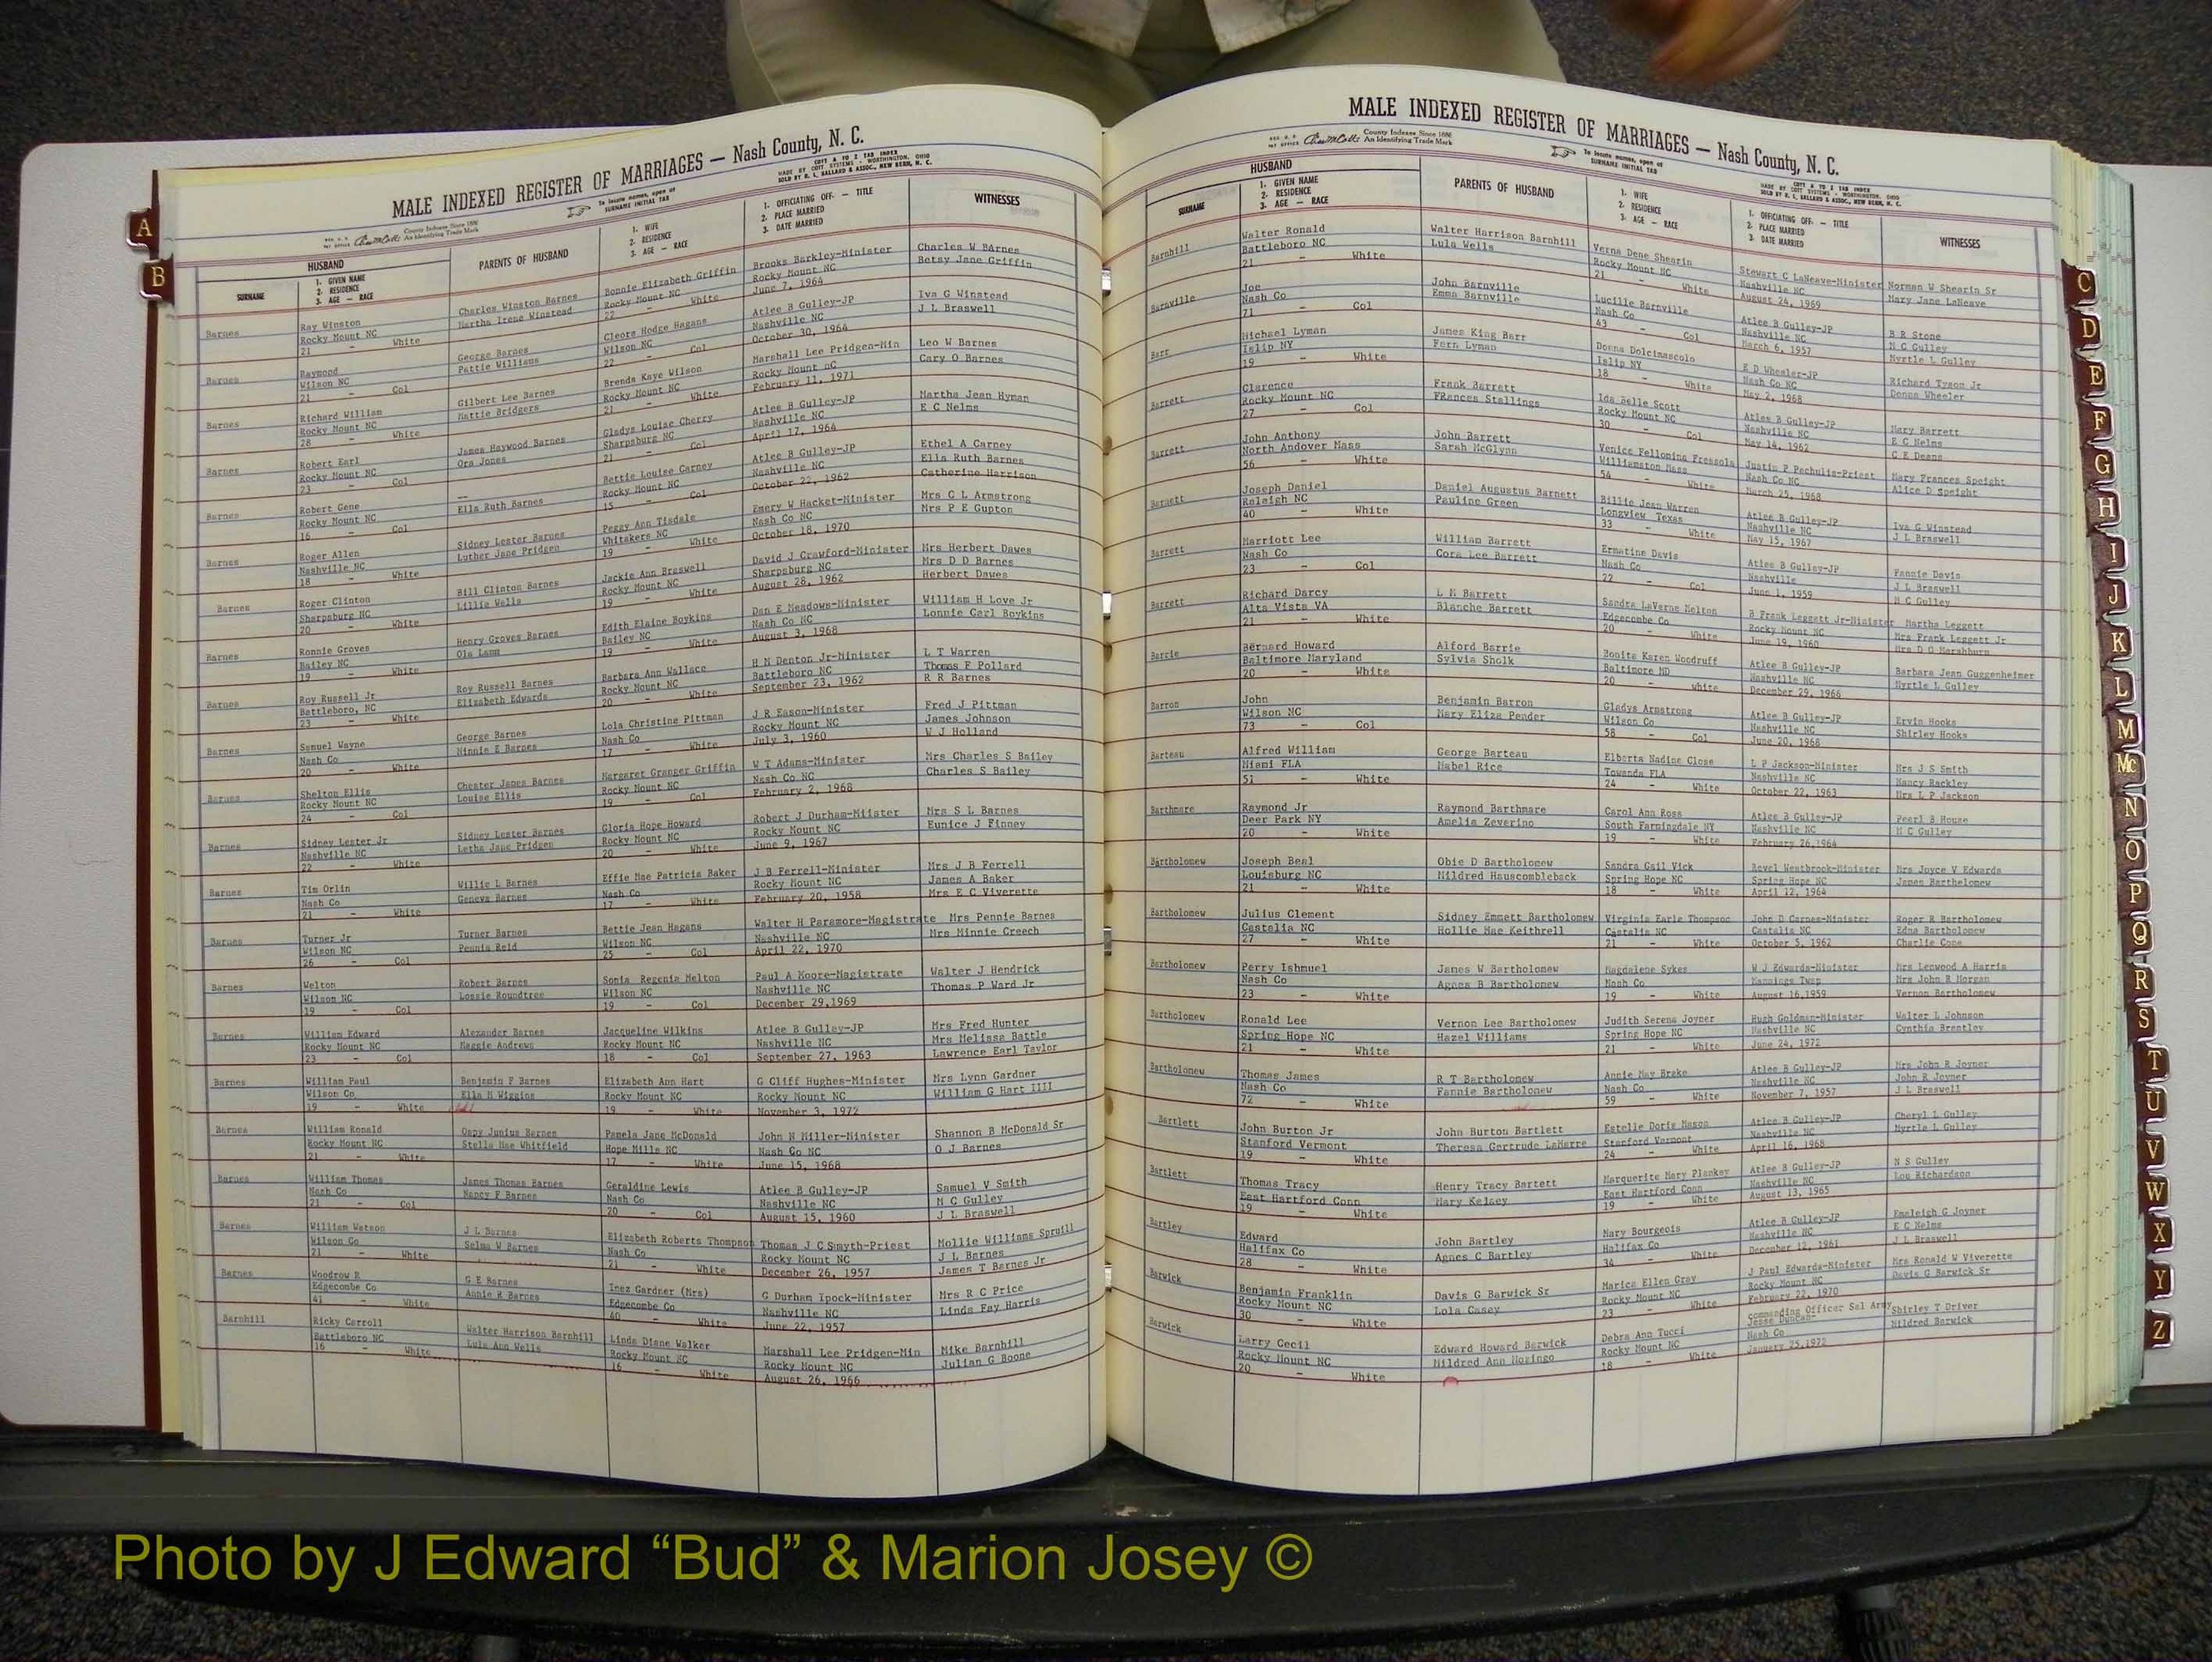 MALE INDEXED REGISTER OF MARRIAGES — Nash County, N. C.
County Indexes Since 1888
An Identifying Trade Mark
To locate names, open at
SURNAME INITIAL TAB
COTT A TO Z TAB INDEX
MADE BY COTT SYSTEMS - WORTHINGTON, OHIO
SOLD BY R. L. BALLARD & ASSOC., NEW BERN, N. C.
HUSBAND
SURNAME
1. GIVEN NAME
2. RESIDENCE
3. AGE — RACE
PARENTS OF HUSBAND
1. WIFE
2. RESIDENCE
3. AGE — RACE
1. OFFICIATING OFF. — TITLE
2. PLACE MARRIED
3. DATE MARRIED
WITNESSES
Barnes Ray Winston Charles Winston Barnes Bonnie Elizabeth Griffin Brooks Barkley-Minister Charles W BArnes
Rocky Mount NC Martha Irene Winstead Rocky Mount NC Rocky Mount NC Betsy Jane Griffin
21 - White 22 - White June 7, 1964
Barnes Raymond George Barnes Cleora Hodge Hagans Atlee B Gulley-JP Iva G Winstead
Wilson NC Pattie Williams Wilson NC Nashville NC J L Braswell
21 - Col 22 - Col October 30, 1964
Barnes Richard William Gilbert Lee Barnes Brenda Kaye Wilson Marshall Lee Pridgen-Min Leo W Barnes
Rocky Mount NC Mattie Bridgers Rocky Mount NC Rocky Mount nC Cary O Barnes
28 - White 21 - White February 11, 1971
Barnes Robert Earl James Haywood Barnes Gladys Louise Cherry Atlee B Gulley-JP Martha Jean Hyman
Rocky Mount NC Ora Jones Sharpsburg NC Nashville NC E C Nelms
23 - Col 21 - Col April 17, 1964
Barnes Robert Gene -- Bettie Louise Carney Atlee B Gulley-JP Ethel A Carney
Rocky Mount NC Ella Ruth Barnes Rocky Mount NC Nashville NC Ella Ruth Barnes
16 - Col 15 - Col October 22, 1962 Catherine Harrison
Barnes Roger Allen Sidney Lester Barnes Peggy Ann Tisdale Emery W Hacket-Minister Mrs C L Armstrong
Nashville NC Luther Jane Pridgen Whitakers NC Nash Co NC Mrs P E Gupton
18 - White 19 - White October 18, 1970
Barnes Roger Clinton Bill Clinton Barnes Jackie Ann Braswell David J Crawford-Minister Mrs Herbert Dawes
Sharpsburg NC Lillie Wells Rocky Mount NC Sharpsburg NC Mrs D D Barnes
20 - White 19 - White August 28, 1962 Herbert Dawes
Barnes Ronnie Groves Henry Groves Barnes Edith Elaine Boykins Dan E Meadows-Minister William H Love Jr
Bailey NC Ola Lamm Bailey NC Nash Co NC Lonnie Carl Boykins
19 - White 19 - White August 3, 1968
Barnes Roy Russell Jr Roy Russell Barnes Barbara Ann Wallace H N Denton Jr-Minister L T Warren
Battleboro, NC Elizabeth Edwards Rocky Mount NC Battleboro NC Thomas F Pollard
23 - White 20 - White September 23, 1962 R R Barnes
Barnes Samuel Wayne George Barnes Lola Christine Pittman J R Eason-Minister Fred J Pittman
Nash Co Minnie E Barnes Nash Co Rocky Mount NC James Johnson
20 - White 17 - White July 3, 1960 W J Holland
Barnes Shelton Ellis Chester James Barnes Margaret Granger Griffin W T Adams-Minister Mrs Charles S Bailey
Rocky Mount NC Louise Ellis Rocky Mount NC Nash Co NC Charles S Bailey
24 - Col 19 - Col February 2, 1968
Barnes Sidney Lester Jr Sidney Lester Barnes Gloria Hope Howard Robert J Durham-Miister Mrs S L Barnes
Nashville NC Letha Jane Pridgen Rocky Mount NC Rocky Mount NC Eunice J Finney
22 - White 20 - White June 9, 1967
Barnes Tim Orlin Willie L Barnes Effie Mae Patricia Baker J B Ferrell-Minister Mrs J B Ferrell
Nash Co Geneva Barnes Nash Co Rocky Mount NC James A Baker
21 - White 17 - White February 20, 1958 Mrs E C Viverette
Barnes Turner Jr Turner Barnes Bettie Jean Hagans Walter H Paramore-Magistrate Mrs Pennie Barnes
Wilson NC Pennia Reid Wilson NC Nashville NC Mrs Minnie Creech
26 - Col 25 - Col April 22, 1970
Barnes Welton Robert Barnes Sonia Regenia Melton Paul A Koore-Magistrate Walter J Hendrick
Wilson NC Lossie Roundtree Wilson NC Nashville NC Thomas P Ward Jr
19 - Col 19 - Col December 29,1969
Barnes William Edward Alexander Barnes Jacqueline Wilkins Atlee B Gulley-JP Mrs Fred Hunter
Rocky Mount NC Maggie Andrews Rocky Mount NC Nashville NC Mrs Melissa Battle
23 - Col 18 - Col September 27, 1963 Lawrence Earl Taylor
Barnes William Paul Benjamin F Barnes Elizabeth Ann Hart G Cliff Hughes-Minister Mrs Lynn Gardner
Wilson Co Ella M Wiggins Rocky Mount NC Rocky Mount NC William G Hart IIII
19 - White 19 - White November 3, 1972
Barnes William Ronald Junius Barnes Pamela Jane McDonald John N Miller-Minister Shannon B McDonald Sr
Rocky Mount NC Stella Mae Whitfield Hope Mills NC Nash Co NC O J Barnes
21 - White 17 - White June 15, 1968
Barnes William Thomas James Thomas Barnes Geraldine Lewis Atlee B Gulley-JP Samuel V Smith
Nash Co Nancy F Barnes Nash Co Nashville NC M C Gulley
21 - Col 20 - Col August 15, 1960 J L Braswell
Barnes William Watson J L Barnes Elizabeth Roberts Thompson Thomas J C Smyth-Priest Mollie Williams Spruill
Wilson Co Selma W Barnes Nash Co Rocky Mount NC J L Barnes
21 - White 21 - White December 26, 1957 James T Barnes Jr
Barnes Woodrow R G E Barnes Inez Gardner (Mrs) G Durham Ipock-Minister Mrs R C Price
Edgecombe Co Annie R Barnes Edgecombe Co Nashville NC Linda Fay Harris
41 - White 40 - White June 22, 1957
Barnhill Ricky Carroll Walter Harrison Barnhill Linda Diane Walker Marshall Lee Pridgen-Min Mike Barnhill
Battleboro NC Lula Ann Wells Rocky Mount NC Rocky Mount NC Julian G Boone
16 - White 16 - White August 26, 1966
MALE INDEXED REGISTER OF MARRIAGES — Nash County, N. C.
County Indexes Since 1888
An Identifying Trade Mark
To locate names, open at
SURNAME INITIAL TAB
COTT A TO Z TAB INDEX
MADE BY COTT SYSTEMS - WORTHINGTON, OHIO
SOLD BY R. L. BALLARD & ASSOC., NEW BERN, N. C.
HUSBAND
SURNAME
1. GIVEN NAME
2. RESIDENCE
3. AGE — RACE
PARENTS OF HUSBAND
1. WIFE
2. RESIDENCE
3. AGE — RACE
1. OFFICIATING OFF. — TITLE
2. PLACE MARRIED
3. DATE MARRIED
WITNESSES
Barnhill Walter Ronald Walter Harrison Barnhill Verna Dene Shearin Stewart C LaNeave-Minister Norman W Shearin Sr
Battleboro NC Lula Wells Rocky Mount NC Nashville NC Mary Jane LaNeave
21 - White 21 - White August 24, 1969
Barnville Joe John Barnville Lucille Barnville Atlee B Gulley-JP B R Stone
Nash Co Emma Barnville Nash Co Nashville NC M C Gulley
71 - Col 43 - Col March 6, 1957 Myrtle L Gulley
Barr Michael Lyman James King Barr Donna Dolcimascolo E D Wheeler-JP Richard Tyson Jr
Islip NY Fern Lyman Islip NY Nash Co NC Donna Wheeler
19 - White 18 - White May 2, 1968
Barrett Clarence Frank Barrett Ida Belle Scott Atlee B Gulley-JP Mary Barrett
Rocky Mount NC FRances Stallings Rocky Mount NC Nashville NC E C Nelms
27 - Col 30 - Col May 14, 1962 C E Deans
Barrett John Anthony John Barrett Venice Fellomina Justin P Pechulis-Priest Mary Frances Speight
North Andover Mass Sarah McGlynn Williamston Mass Nash Co NC Alice D Speight
56 - White 54 - White March 25, 1968
Barnett Joseph Daniel Daniel Augustus Barnett Billie Jean Warren Atlee B Gulley-JP Iva G Winstead
Raleigh NC Pauline Green Longview Texas Nashville NC J L Braswell
40 - White 33 - White May 15, 1967
Barrett Marriott Lee William Barrett Ernatine Davis Atlee B Gulley-JP Fannie Davis
Nash Co Cora Lee Barrett Nash Co Nashville J L Braswell
23 - Col 22 - Col June 1, 1959 M C Gulley
Barrett Richard Darcy L M Barrett Sandra LaVerne Melton B Frank Leggett Jr-Minister Martha Leggett
Alta Vista VA Blanche Barrett Edgecombe Co Rocky Mount NC Mrs Frank Leggett Jr
21 - White 20 - White June 19, 1960 Mrs D G Marshburn
Barrie Bernard Howard Alford Barrie Bonita Karen Woodruff Atlee B Gulley-JP Barbara Jean Guggenheimer
Baltimore Maryland Sylvia Sholk Baltimore MD Nashville NC Myrtle L Gulley
20 - White 20 - white December 29, 1966
Barron John Benjamin Barron Gladys Armstrong Atlee B Gulley-JP Ervin Hooks
Wilson NC Mary Eliza Pender Wilson Co Nashville NC Shirley Hooks
73 - Col 58 - Col June 20, 1968
Barteau Alfred William George Barteau Elberta Nadine Close L P Jackson-Minister Mrs J S Smith
Miami FLA Mabel Rice Towanda FLA Nashville NC Nancy Rackley
51 - White 24 - White October 22, 1963 Mrs L P Jackson
Barthmare Raymond Jr Raymond Barthmare Carol Ann Ross Atlee B Gulley-JP Pearl B House
Deer Park NY Amelia Zeverino South Farmingdale NY Nashville NC M C Gulley
20 - White 19 - White February 26,1964
Bartholomew Joseph Beal Obie D Bartholomew Sandra Gail Vick Rovel Westbrook-Minister Mrs Joyce V Edwards
Louisburg NC Mildred Hauscombleback Spring Hope NC Spring Hope NC James Bartholomew
21 - White 18 - White April 12, 1964
Bartholomew Julius Clement Sidney Emmett Bartholomew Virginia Earle Thompson John D Carnes-Minister Roger R Bartholomew
Castalia NC Hollie Mae Keithrell Castalia NC Castalia NC Edna Bartholomew
27 - White 21 - White October 5, 1962 Charlie Cone
Bartholomew Perry Ishmuel James W Bartholomew Magdalene Sykes W J Edwards-Minister Mrs Lenwood A Harris
Nash Co Agnes B Bartholomew Nash Co Mannings Twsp Mrs John R Morgan
23 - White 19 - White August 16,1959 Vernon Bartholomew
Bartholomew Ronald Lee Vernon Lee Bartholomew Judith Serena Joyner Hugh Goldman-Minister Walter L Johnson
Spring Hope NC Hazel Williams Spring Hope NC Nashville NC Cynthia Brantley
21 - White 21 - White June 24, 1972
Bartholomew Thomas James R T Bartholomew Annie May Brake Atlee B Gulley-JP Mrs John R Joyner
Nash Co Fannie Bartholomew Nash Co Nashville NC John R Joyner
72 - White 59 - White November 7, 1957 J L Braswell
Bartlett John Burton Jr John Burton Bartlett Estelle Doris Mason Atlee B Gulley-JP Cheryl L Gulley
Stanford Vermont Theresa Gertrude LaMarre Stanford Vermont Nashville NC Myrtle L Gulley
19 - White 24 - White April 16, 1968
Bartlett Thomas Tracy Henry Tracy Bartett Marguerite Mary Plankey Atlee B Gulley-JP N S Gulley
East Hartford Conn Mary Kelsey East Hartford Conn Nashville NC Lou Richardson
19 - White 19 - White August 13, 1965
Bartley Edward John Bartley Mary Bourgeois Atlee B Gulley-JP G Joyner
Halifax Co Agnes C Bartley Halifax Co Nashville NC E C Nelms
28 - White 34 - White December 12, 1961 J L Braswell
Barwick Benjamin Franklin Davis G Barwick Sr Marica Ellen Gray J Paul Edwards-Minister Mrs Ronald W Viverette
Rocky Mount NC Lola Casey Rocky Mount NC Rocky Mount NC Davis G Barwick Sr
30 - White 23 - White February 22, 1970
Barwick Larry Cecil Edward Howard Barwick Debra Ann Tucci commanding Officer Sal Army Shirley T Driver
Jesse Duncan- Mildred Barwick
Rocky Mount NC Mildred Ann Mozingo Rocky Mount NC Nash Co
20 - White 18 - White January 25,1972
A
B
C
D
E
F
G
H
I
J
K
L
M
Mc
N
O
P
Q
R
S
T
U
V
W
X
Y
Z
Photo by J Edward “Bud” & Marion Josey ©